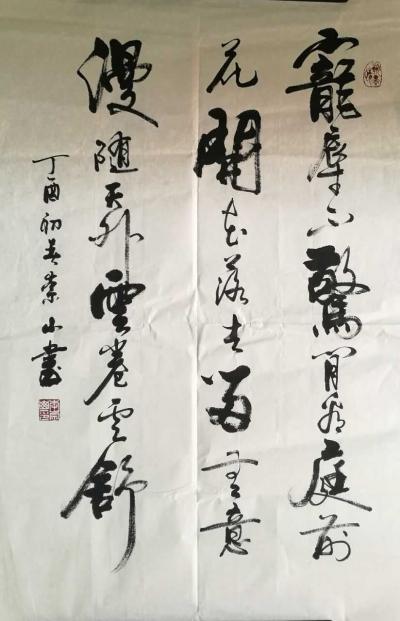 寵辱不驚閒看庭前
花開花落去留無意
漫隨天外雲卷雲舒
丁酉初春崇山書